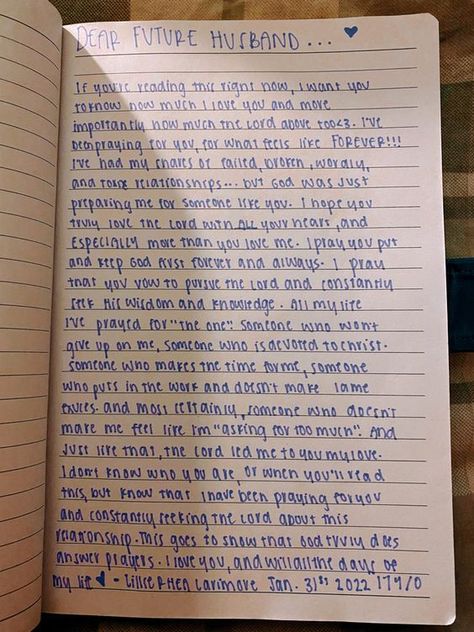 DEAR FUTURE HUSBAND...
If you're reading this right now, I want you
to know how much I love you and more
importantly how much the Lord above too<3. I've
been praying for you, for what feels like FOREVER!!!
I've had my shares of failed, broken, worldly,
and toxic relationships... but God was just
preparing me for someone like you. I hope you
truly love the Lord with ALL your heart, and
ESPECIALLY more than you love me. I pray you put
and keep God first forever and always. I pray
that you vow to pursue the Lord and constantly
seek His wisdom and knowledge. All my life
I've prayed for "the one". Someone who won't
give up on me, someone who is devoted to Christ.
Someone who makes the time for me, someone
who puts in the work and doesn't make lame
exuces. and most certainly, someone who doesn't
make me feel like I'm "asking for too much". And
just like that, the Lord led me to you my love.
I don't know who you are, or when you'll read
this, but know that I have been praying for you
and constantly seeking the Lord about this
relationship. This goes to show that God truly does
answer prayers. I love you, and will all the days of
my life - Jan. 31st 2022